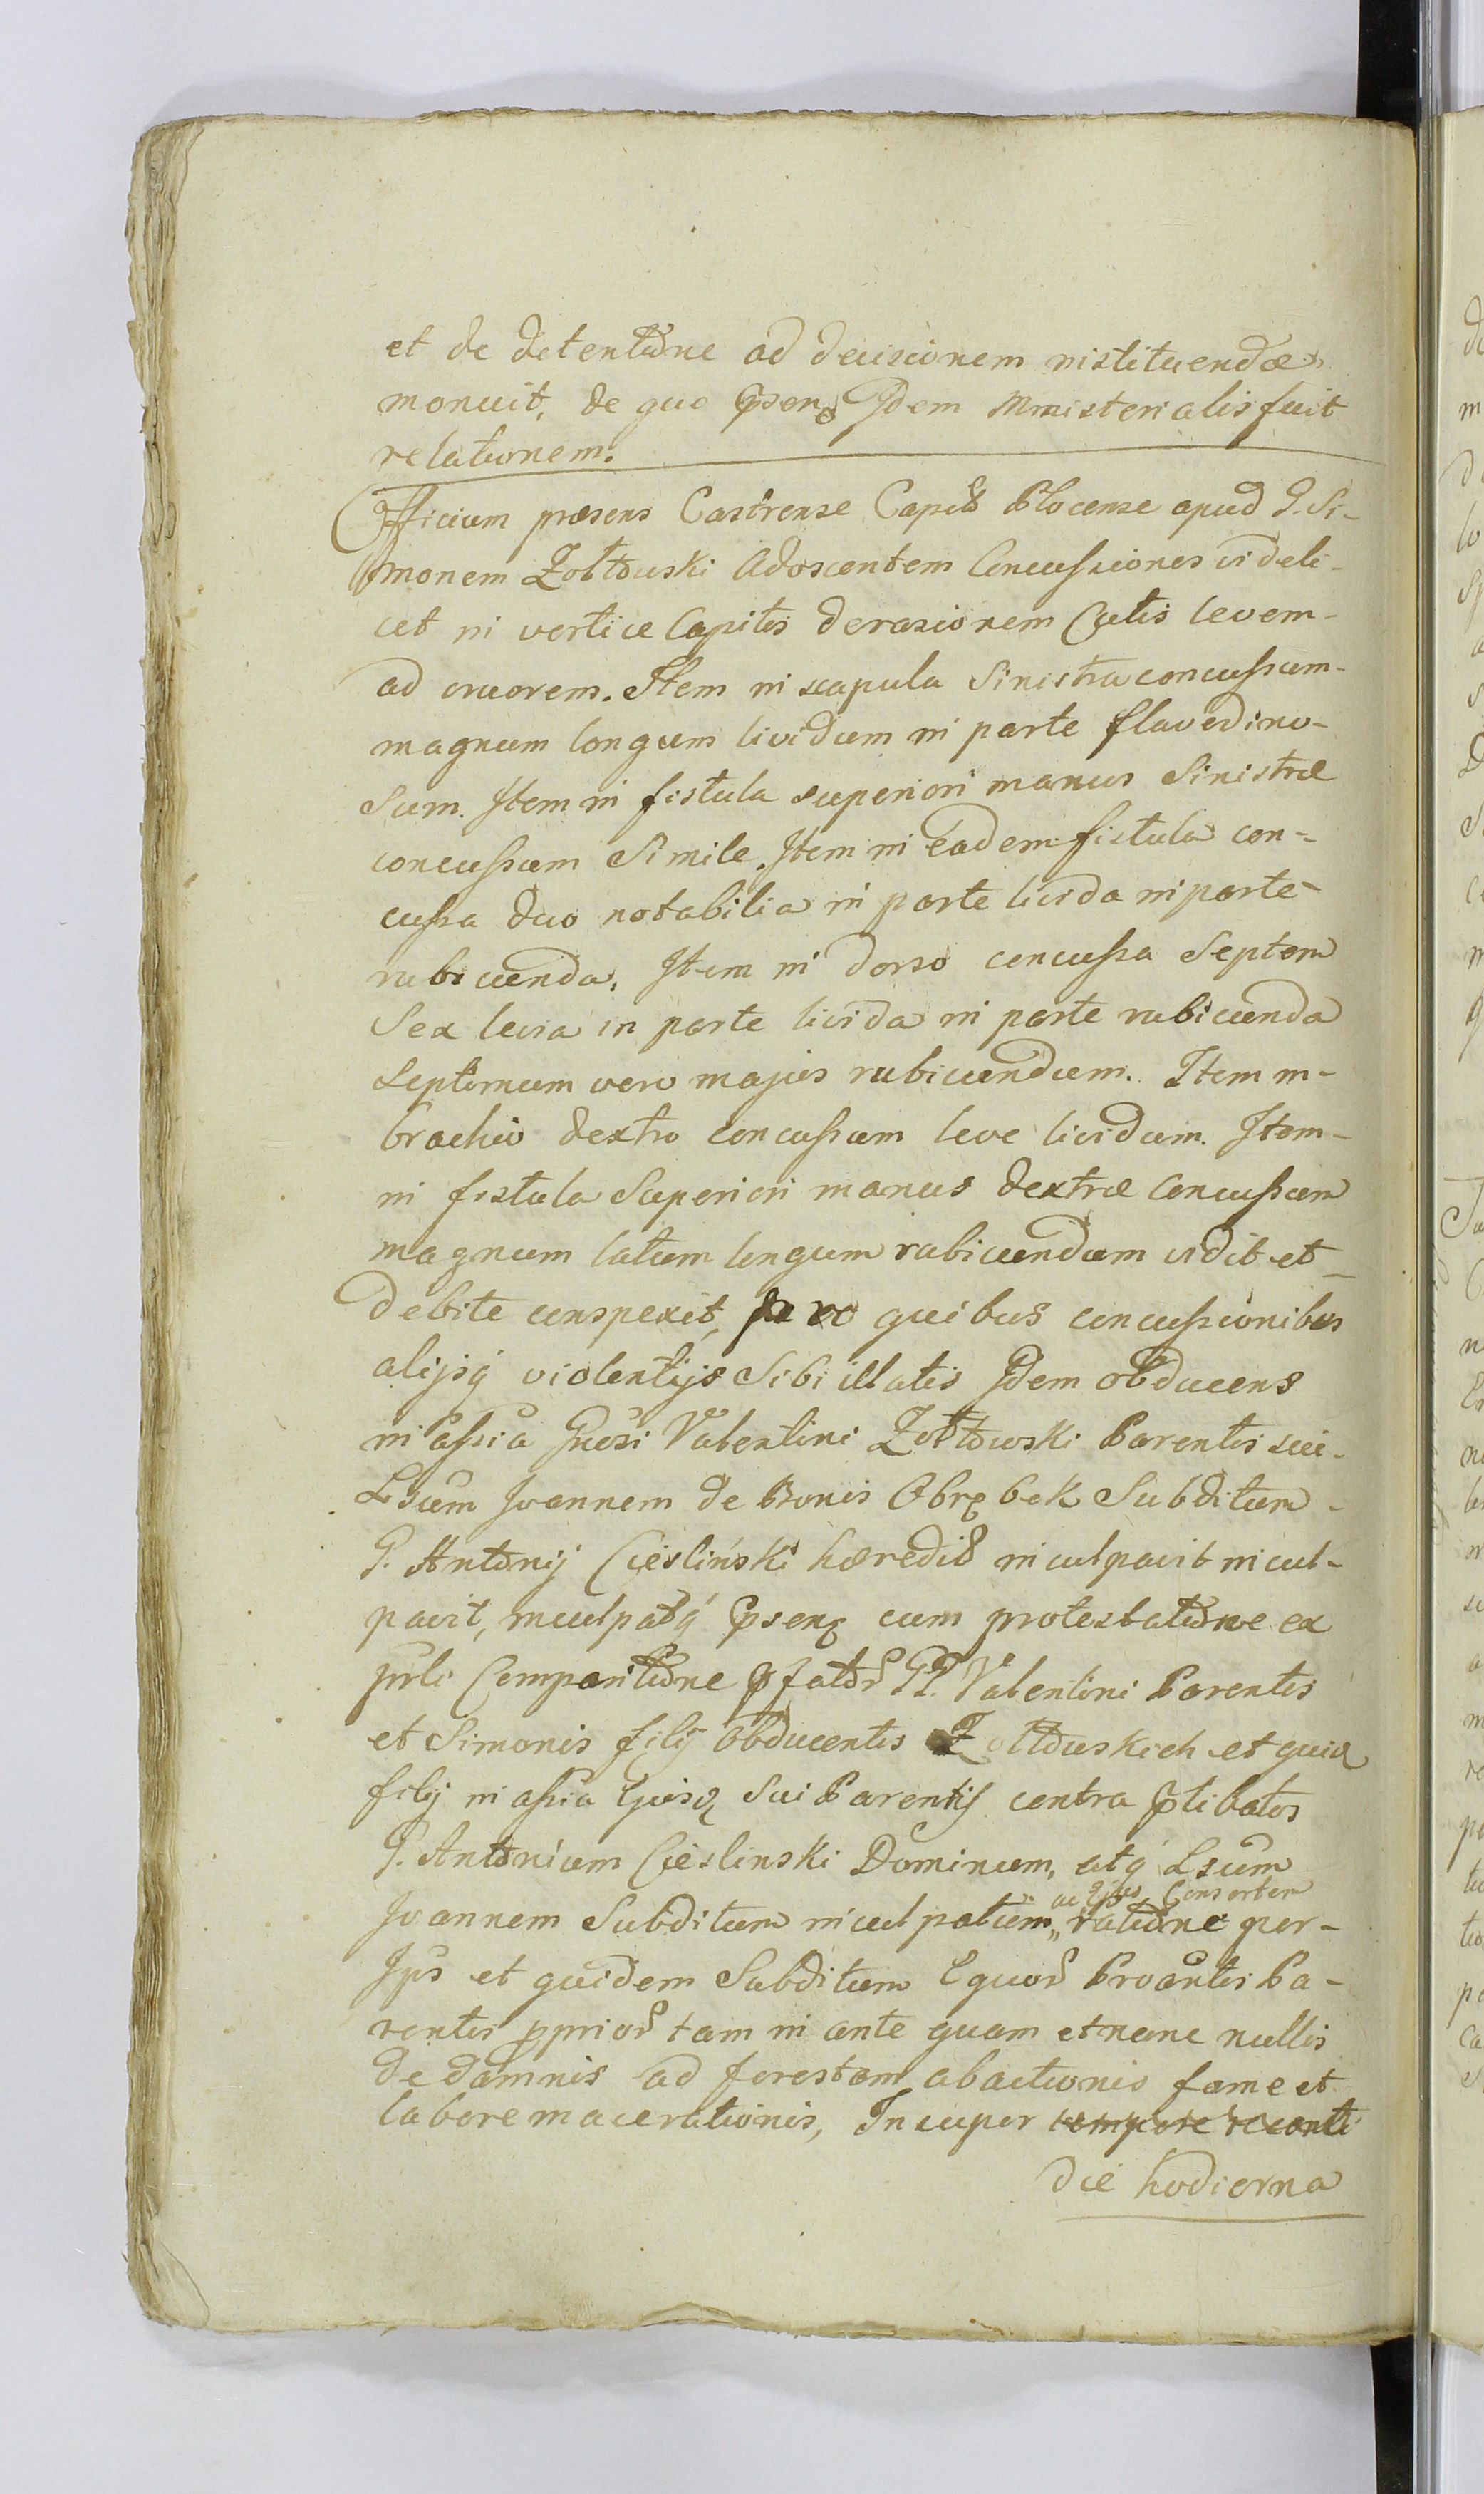 et de detentione ad decisionem instituenda
monuit, de quo Ipsenq Idem Ministerialis fuit
relationem.
Officium præsens Castrense Caplē Plocense apud G. Si-
monem Zołtowski Adoscentem Concussiones videli-
cet in vertice Capitis derasionem Cutis levem-
ad cruorem. Item in scapula Sinistra concussum-
magnum longum lividum in parte flavedino-
sum. Item in fistula superiori manus Sinistræ
concussum Simile. Item in eadem fistula con-
cussa duo notabilia in parte livida in parte-
rubicunda, Item in dorso concussa Septem
Sex levia in parte livida in parte rubicunda
Septimum vero majus rubicundum. Item in-
brachio dextro concussum leve lividum. Item-
in fistula Superiori manus dextræ Concussum
magnum latum longum rubicundum vidit et-
debite conspexit, pro quibus concussionibus
alijsq violentijs Sibi illatis Idem obducens
in assia Gnosi Valentini Zołtowski Parentis sui-
Lsum Joannem de Bonis Obrębek Subditum-
G. Antonij Cieśliński hæredis inculpavit incul-
pavit, inculpatq Ipsenq cum protestatione ex
prli Comparitione pfator GG. Valentini Parentis
et Simonis filij obducentis Zołtowskich et quidē
filij in assia Ejusq Sui Parentis contra ptibatos
G. Antonium Cieslinski Dominum, atq Lsum
ac Ejus Consortem
Joannem Subditum inculpatum, ratione per-
Ips et quidem Subditum Equor Proantis Pa-
rentis ppriors tam in ante quam et nunc nullis
de damnis ad forestam abactionis fame et
labore macerationis, Insuper tempore recenti
die hodierna